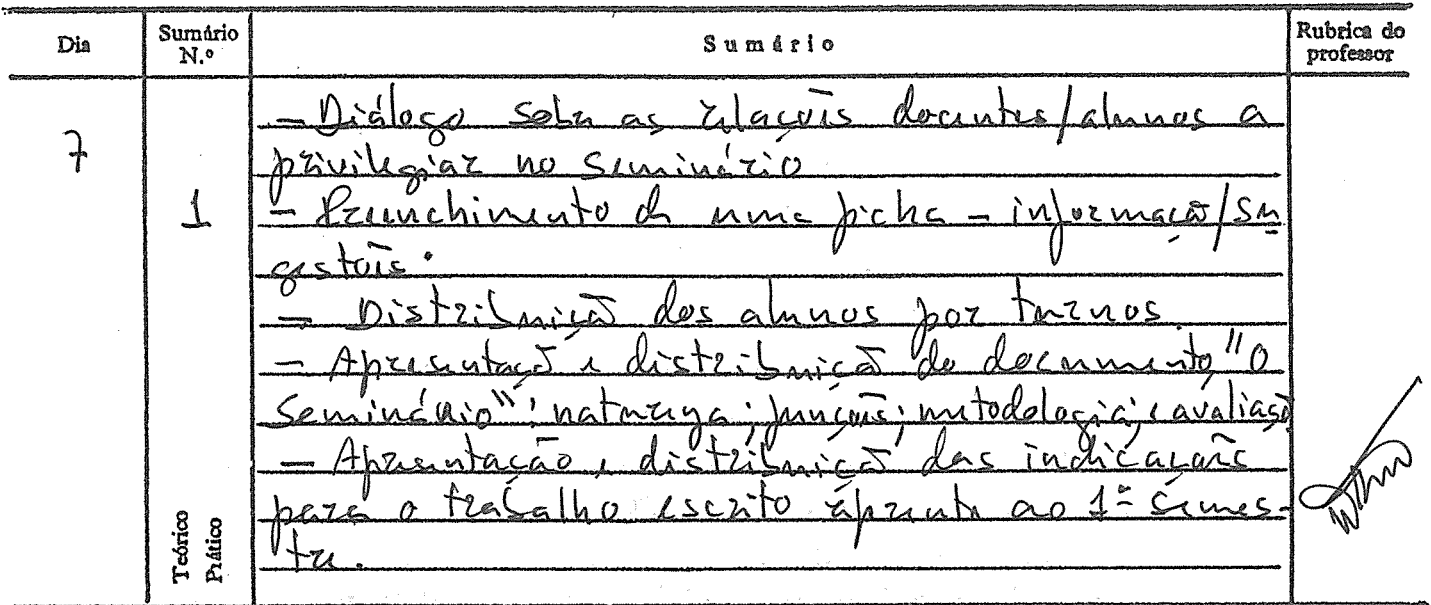 Dia
Sumário N.º
Sumário
Rubrica do professor
7
1
Teórico
Prático
- Diálogo sobre as relações docentes/alunos a
privilegiar no Seminário
- Preenchimento de uma ficha - informação/su
gestões.
- Distribuição dos alunos por turnos.
- Apresentação e distribuição do documento "O
Seminário": natureza; funções; metodologia; e avaliação
- Apresentação e distribuição das indicações
para o trabalho escrito referente ao 1º Semes-
tre.